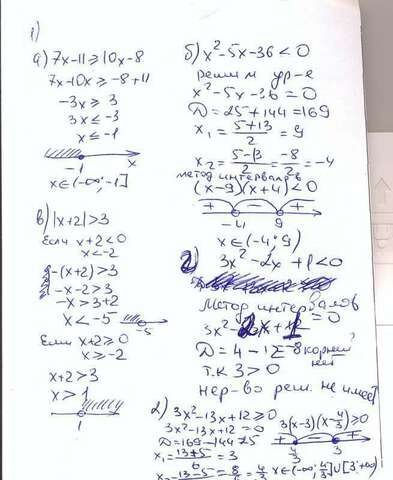 1)
а) 7x-11≥10x-8
7x-10x≥-8+11
-3x≥3
3x≤-3
x≤-1
-1 x
x∈(-∞;-1]
б) x²-5x-36<0
решим ур-е
x²-5x-36=0
D=25+144=169
x₁=(5+13)/2=9
x₂=(5-13)/2=-8/2=-4
метод интервалов
(x-9)(x+4)<0
+ - +
-4 9
x∈(-4;9)
в) |x+2|>3
Если x+2<0
x<-2
-(x+2)>3
-x-2>3
-x>3+2
x<-5
-5
Если x+2≥0
x≥-2
x+2>3
x>1
1
г) 3x²-2x+1<0
метод интервалов
3x²-2x+1=0
D=4-12=-8 корней
нет
т.к 3>0
нер-во реш. не имеет
2) 3x²-13x+12≥0
3x²-13x+12=0
D=169-144=25
x₁=(13+5)/6=3
x₂=(13-5)/6=8/6=4/3
3(x-3)(x-4/3)≥0
+ - +
4/3 3
x∈(-∞;4/3]∪[3;+∞)